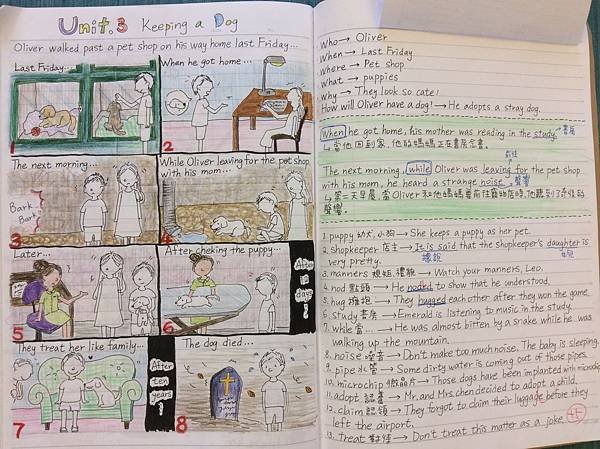 Unit.3 Keeping a Dog
Oliver walked past a pet shop on his way home last Friday...
Last Friday...
1
When he got home...
2
The next morning...
Bark~
Bark~
3
While Oliver leaving for the pet shop
with his mom...
4
Later...
5
After cheking the puppy...
6
After
days
They treat her like family...
7
After
ten
years
The dog died...
8
Who→ Oliver
When→ Last Friday
Where→ Pet shop
What→ puppies
Why→ They look so cute!
How will Oliver have a dog!→ He adopts a stray dog.
When he got home, his mother was reading in the study.→書房
當他回到家，他的媽媽正在書房念書。
前往
The next morning, while Oliver was leaving for the pet shop
with his mom, he heard a strange noise. 聲響
第二天早晨，當Oliver和他媽媽要前往寵物店時，他聽到了奇怪的
聲響。
1. puppy 幼犬，小狗→ She keeps a puppy as her pet.
2. shopkeeper 店主→ It is said that the shopkeeper's daughter is
very pretty. 據說
3. manners 規矩，禮貌→ Watch your manners, Leo.
4. nod 點頭→ He nodded to show that he understood.
5. hug 擁抱→ They hugged each other after they won the game.
6. study 書房→ Emerald is listening to music in the study.
7. while 當...→ He was almost bitten by a snake while he was
walking up the mountain.
8. noise 噪音→ Don't make too much noise. The baby is sleeping.
9. pipe 水管→ Some dirty water is coming out of those pipes.
10. microchip 微晶片→ Those dogs have been implanted with microchip
11. adopt 認養→ Mr. and Mrs chen decided to adopt a child.
12. claim 認領→ They forgot to claim their luggage before they
left the airport.
13. treat 對待→ Don't treat this matter as a joke